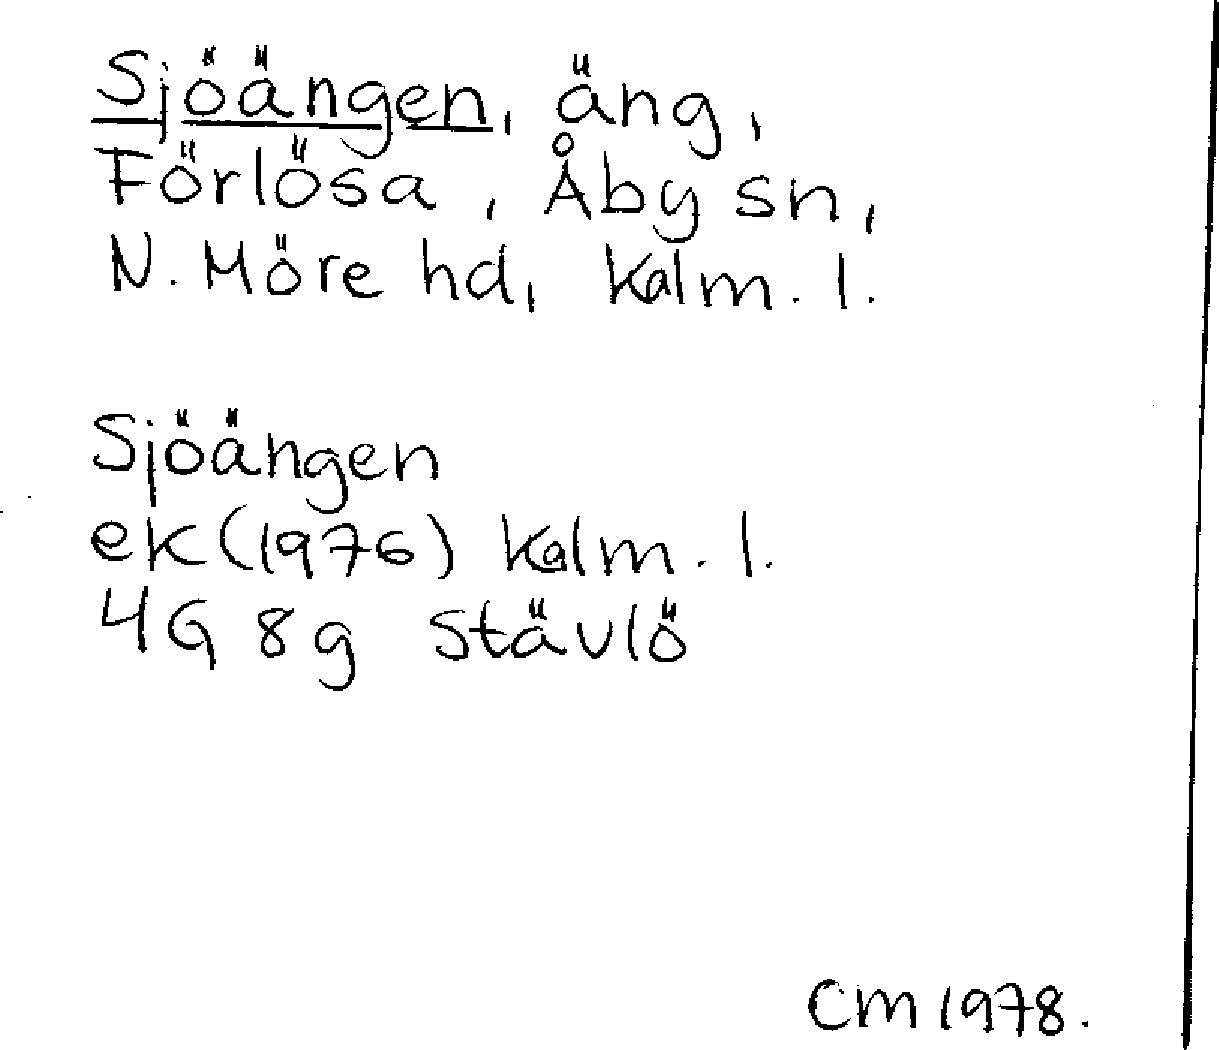 Sjöängen, äng,
Förlösa, Åby sn,
N. Möre hd, Kalm. l.
Sjöängen
ek (1976) Kalm. l.
4G 8g Stävlö
CM 1978.